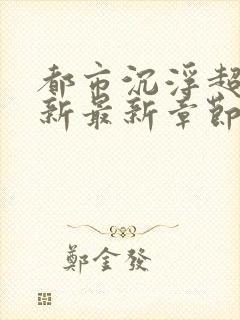 都市沉浮超
新最新章節
鄭金發